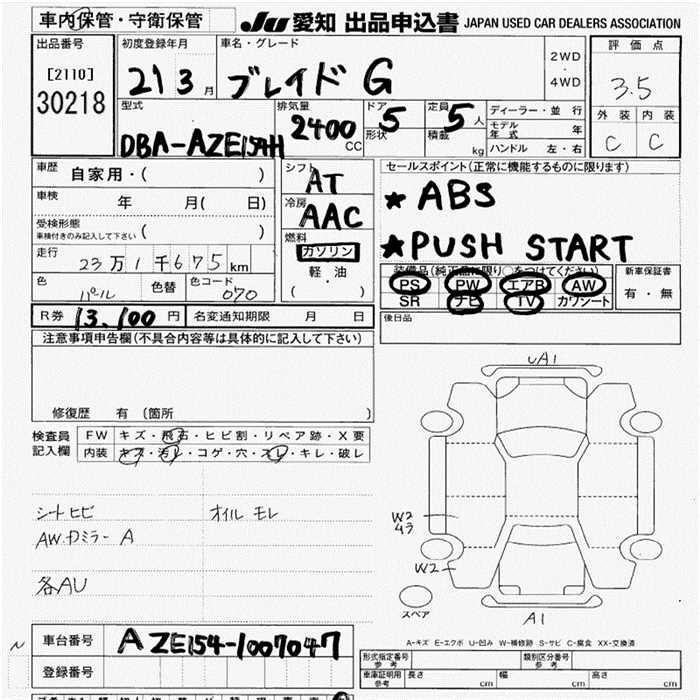 車内保管・守衛保管 JU 愛知 出品申込書 JAPAN USED CAR DEALERS ASSOCIATION
出品番号 初度登録年月 車名・グレード 2WD・4WD 評価点
[2110] 30218 21 3月 ブレイド G 3.5
型式 排気量 ドア 定員 ディーラー・並行 外装 内装
DBA-AZE154H 2400 CC 5 形状 5人 積載 kg モデル年式 年 C C
ハンドル 左・右
車歴 自家用・( ) シフト AT セールスポイント(正常に機能するものに限ります)
車検 年 月( 日) 冷房 AAC ★ABS
受検形態 車検付きのみ記入して下さい ( ) 燃料 ガソリン ★PUSH START
走行 23万1千675km 軽・油 装備品(純正品に限り○をつけてください) 新車保証書
色 パール 色替 色コード 070 ( ) PS PW エアB AW 有・無
SR ナビ TV カワシート
R券 13,100円 名変通知期限 月 日 後日品
注意事項申告欄(不具合内容等は具体的に記入して下さい)
修復歴 有 (箇所 )
検査員記入欄 FW キズ・飛石・ヒビ割・リペア跡・X要
内装 キズ・汚レ・コゲ・穴・スレ・キレ・破レ
シートヒビ オイルモレ
AW.Dミラー A
各AU
UA1
W2
W2
A1
スペア
A-キズ E-エクボ U-凹み W-補修跡 S-サビ C-腐食 XX-交換済
車台番号 AZE154-1007047
登録番号
形式指定番号 参考 類別区分番号 参考
車庫証明用 参考 長さ cm 幅 cm 高さ cm